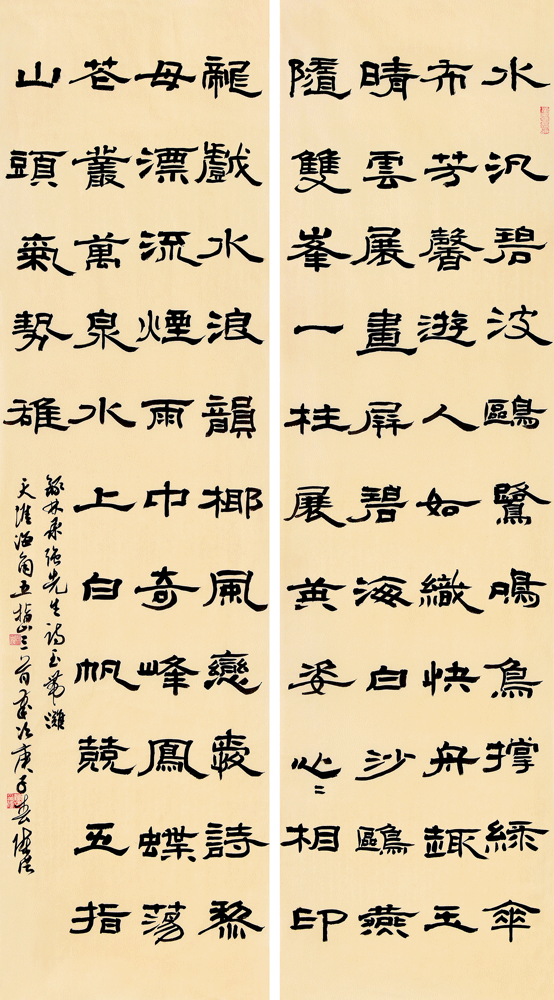 水汎碧波鷗鷺鳴島撐綠傘
布芳馨游人如織快舟趣玉
晴雲展畫屏碧海白沙鷗燕
隨雙峯一柱展英姿心〻相印
龍戲水浪韻椰風戀愛詩黎
母漂流煙雨中奇峰鳳蝶蕩
花叢萬泉水上白帆競五指
山頭氣勢雄
錄林承強先生詩玉帶灘
天涯海角五指山三首歲次庚子春